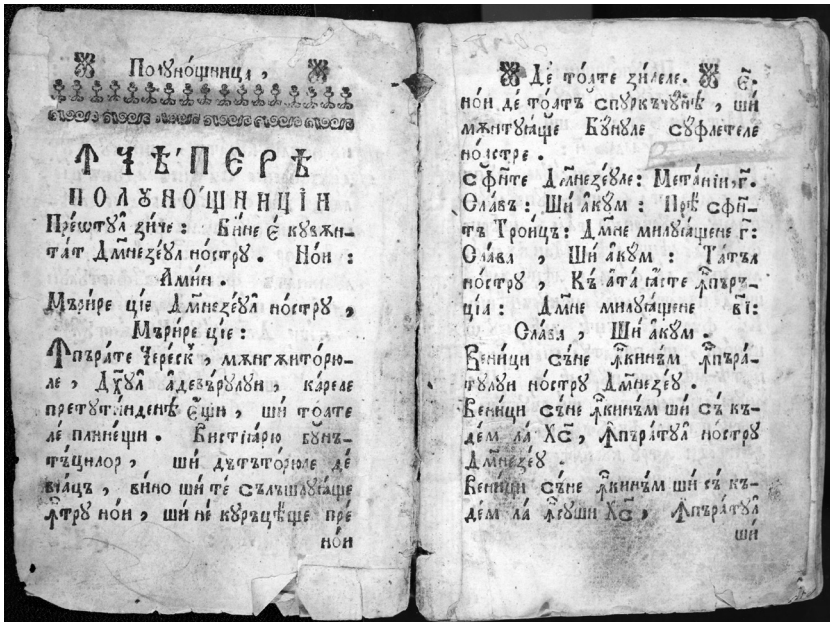 Полꙋнощница,
Ꙟчѣ́пєрѣ
полꙋно́щницїи
Прєѡ́тꙋл зи́чє: Би́нє є҆́ кꙋвѫн-
та́т Дм҃нєзє́ꙋл но́стрꙋ. Но́и:
А҆ми́н.
Мъри́рє цїє Дм҃нєзє́ꙋл но́стрꙋ,
Мъри́рє цїє:
Ꙟпъра́тє чєрє́ск, мѫнгѫито́рю-
лє, Дх҃ꙋл а҆дєвъ́рꙋлꙋи, ка́рєлє
прєтꙋти́ндєнѣ є҆́щи, ши́ то́атє
лє́ плинє́щи. Висти҆а́рю бꙋнъ-
тъ́цилор, ши́ дътъто́рюлє дє́
вїа́цъ, ви́но ши́ тє́ сълъшлꙋꙗ́щє
ꙟ҆́трꙋ но́и, ши́ нє́ кꙋръцѣ́щє прє́
но́и
Дє́ то́атє зи́лєлє. Є҆́:
но́и дє́ то́атъ спꙋркъчꙋ́нѣ, ши́
мѫнтꙋꙗ́щє Бꙋ́нꙋлє сꙋ́флєтєлє
но́астрє.
Сфи́нтє Дм҃нєзє́ꙋлє: Мєта́нїи, г҃.
Сла́въ: Ши́ а҆кꙋм: Прѣ́ сфн҃-
тъ Тро́ицъ: Дм҃нє милꙋꙗ́щєнє г҃:
Сла́въ, Ши́ а҆кꙋм: Та́тъл
но́стрꙋ, Къ а҆та́ ꙗ́стє ꙟ҆пъръ-
цїа: Дм҃нє милꙋꙗ́щєнє в҃і:
Сла́въ, Ши́ а҆кꙋм.
Вєни́ци съ́нє ꙟ҆кинъ́м ꙟ҆пъра́-
тꙋлꙋи но́стрꙋ Дм҃нєзє́ꙋ.
Вєни́ци съ́нє ꙟ҆кинъ́м ши́ съ́ къ-
дє́м ла́ Хс҃, Ꙟпъра́тꙋл но́стрꙋ
Дм҃нєзє́ꙋ
Вєни́ци съ́нє ꙟ҆кинъ́м ши́ съ́ къ-
дє́м ла́ ꙟ҆сꙋши Хс҃, Ꙟпъра́тꙋл
ши́